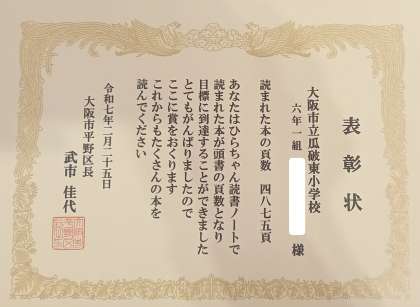 表彰状
大阪市立瓜破東小学校
六年一組 様
読まれた本の頁数 四八七五頁
あなたはひらちゃん読書ノートで
読まれた本が頭書の頁数となり
目標に到達することができました
とてもがんばりましたので
ここに賞をおくります
これからもたくさんの本を
読んでください
令和七年二月二十五日
大阪市平野区長
武市 佳代